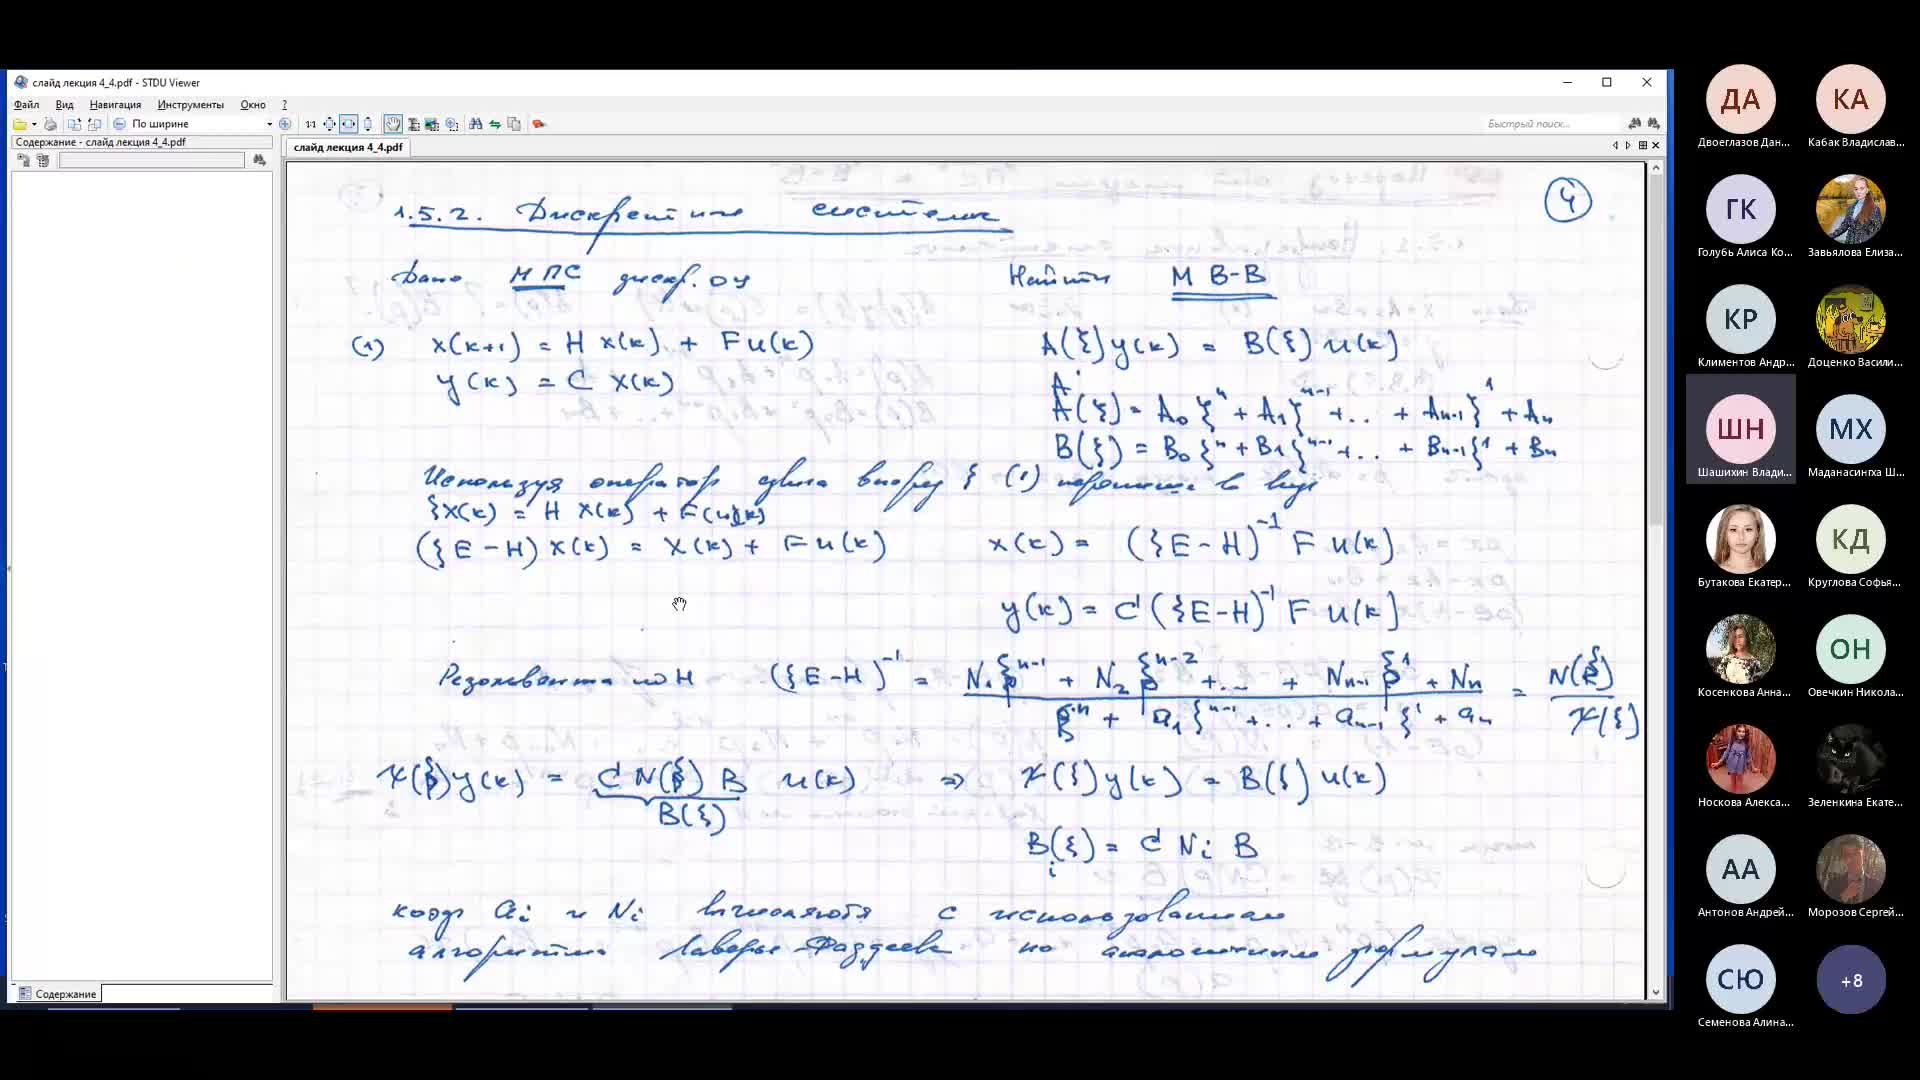 слайд лекция 4_4.pdf - STDU Viewer
Файл Вид Навигация Инструменты Окно ?
По ширине
Быстрый поиск...
Содержание - слайд лекция 4_4.pdf
слайд лекция 4_4.pdf
1.5.2. Дискретные системы
4
Дано МПС дискр. ОУ
Найти М В-В
(1) x(k+1) = H x(k) + F u(k)
A(ξ) y(k) = B(ξ) u(k)
y(k) = C x(k)
A(ξ) = A₀ ξⁿ + A₁ ξⁿ⁻¹ + .. + Aₙ₋₁ ξ¹ + Aₙ
B(ξ) = B₀ ξⁿ + B₁ ξⁿ⁻¹ + .. + Bₙ₋₁ ξ¹ + Bₙ
Используя оператор сдвига вперед ξ (1) перепишем в виде
ξ x(k) = H x(k) + F u(k)
(ξE - H) x(k) = x(k) + F u(k)
x(k) = (ξE - H)⁻¹ F u(k)
y(k) = C (ξE - H)⁻¹ F u(k)
Резольвента по H (ξE - H)⁻¹ = (N₁ ξⁿ⁻¹ + N₂ ξⁿ⁻² + ... + Nₙ₋₁ ξ¹ + Nₙ) / (ξⁿ + a₁ ξⁿ⁻¹ + .. + aₙ₋₁ ξ¹ + aₙ) = N(ξ) / χ(ξ)
χ(ξ) y(k) = C N(ξ) B u(k) ⇒ χ(ξ) y(k) = B(ξ) u(k)
B(ξ)
Bᵢ(ξ) = C Nᵢ B
коэф aᵢ и Nᵢ вычисляются с использованием
алгоритма Леверье-Фаддеева по аналогичным формулам
Содержание
ДА
Двоеглазов Дан...
КА
Кабак Владислав...
ГК
Голубь Алиса Ко...
Завьялова Елиза...
КР
Климентов Андр...
Доценко Васили...
ШН
Шашихин Влади...
МХ
Маданасингха Ш...
Бутакова Екатер...
КД
Круглова Софья...
Косенкова Анна...
ОН
Овечкин Никола...
Носкова Алекса...
Зеленкина Екате...
АА
Антонов Андрей...
Морозов Сергей...
СЮ
Семенова Алина...
+8